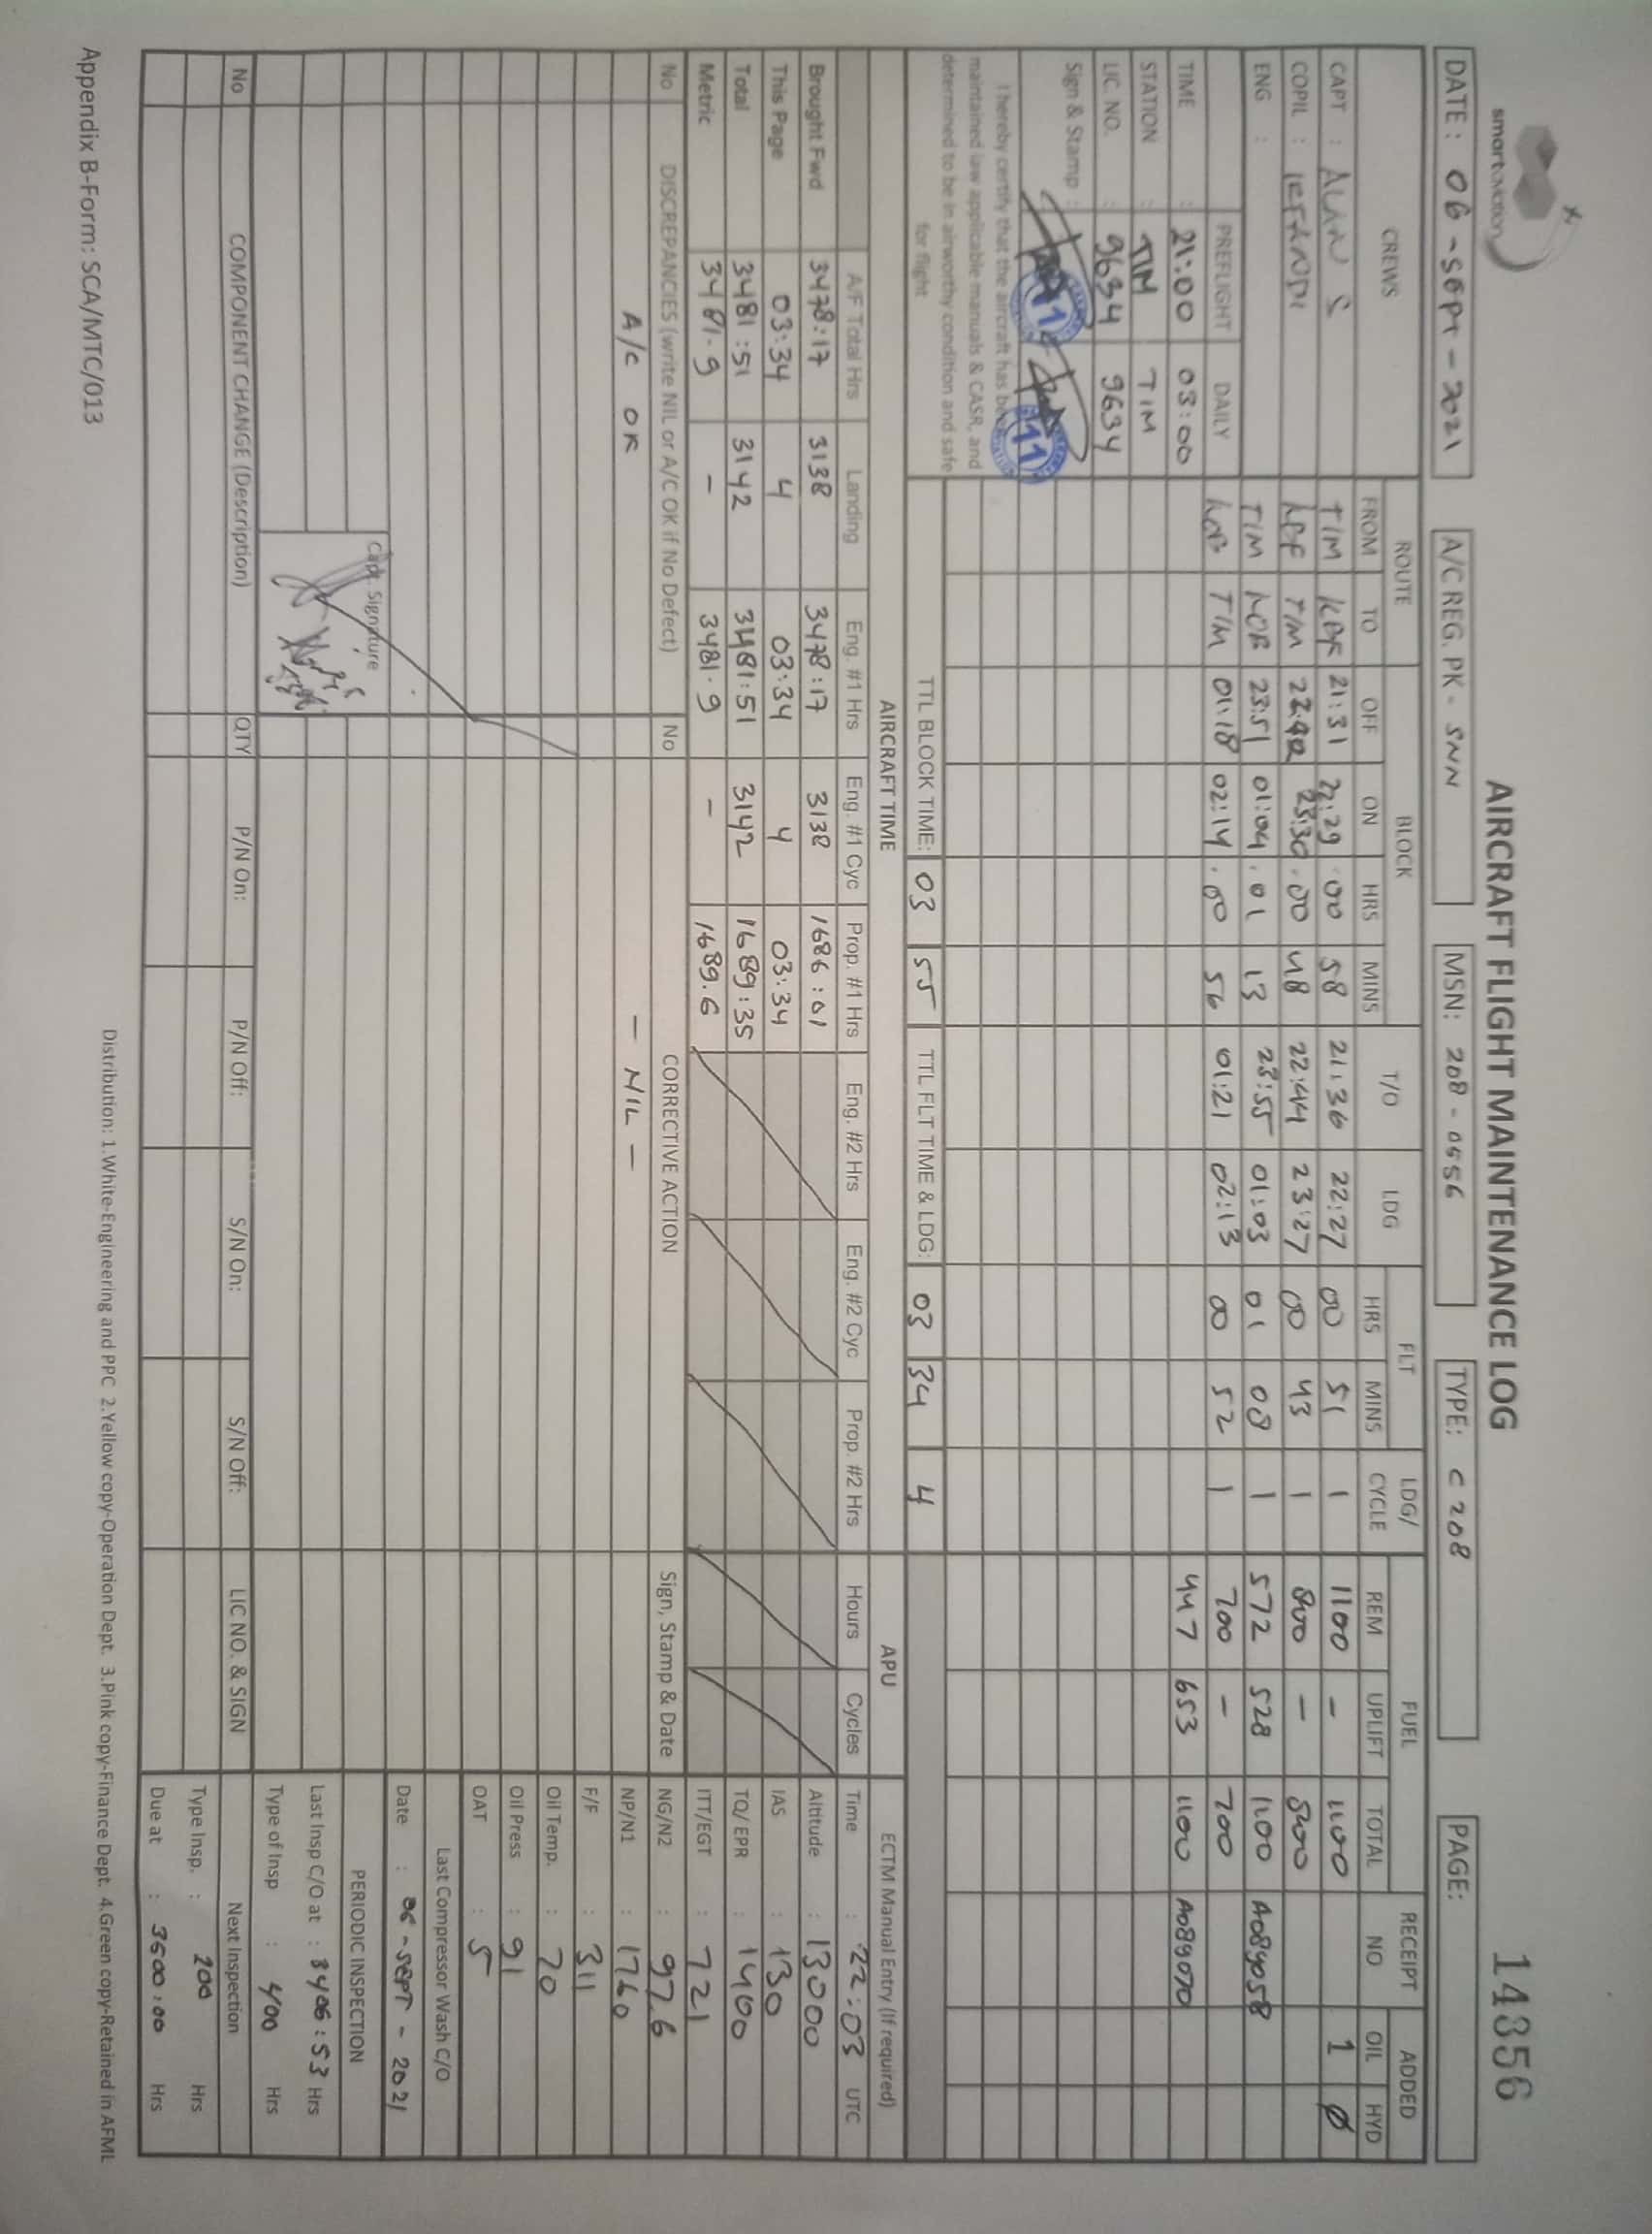 smart aviation
AIRCRAFT FLIGHT MAINTENANCE LOG
14356
DATE : 06 - SEPT - 2021
A/C REG. PK - SNN
MSN: 208 - 0556
TYPE: C 208
PAGE:
CREWS ROUTE BLOCK T/O LDG FLT LDG/ CYCLE FUEL RECEIPT NO ADDED
FROM TO OFF ON HRS MINS HRS MINS REM UPLIFT TOTAL OIL HYD
CAPT : ALAN S TIM 21:31 22:29 00 58 21:36 22:27 00 51 1 1100 - 1100 1 Ø
COPIL : TIM 23:30 00 48 22:44 23:27 00 43 1 800 - 800
ENG : TIM 23:51 01:04 01 13 23:55 01:03 01 08 1 572 528 1100 A089058
PREFLIGHT DAILY TIM 01:18 02:14 00 56 01:21 02:13 00 52 1 700 - 700
TIME : 21:00 03:00 447 653 1100 A089070
STATION : TIM TIM
LIC. NO. : 9634 9634
Sign & Stamp :
11 11
I hereby certify that the aircraft has been
maintained iaw applicable manuals & CASR, and
determined to be in airworthy condition and safe
for flight
TTL BLOCK TIME: 03 55 TTL FLT TIME & LDG: 03 34 4
AIRCRAFT TIME APU ECTM Manual Entry (If required)
A/F Total Hrs Landing Eng. #1 Hrs Eng. #1 Cyc Prop. #1 Hrs Eng. #2 Hrs Eng. #2 Cyc Prop. #2 Hrs Hours Cycles Time : 22:03 UTC
Brought Fwd 3478:17 3138 3478:17 3138 1686:01 Altitude : 13000
This Page 03:34 4 03:34 4 03:34 IAS : 130
Total 3481:51 3142 3481:51 3142 1689:35 TQ/ EPR : 1400
Metric 3481.9 - 3481.9 - 1689.6 ITT/EGT : 721
No DISCREPANCIES (write NIL or A/C OK if No Defect) No CORRECTIVE ACTION Sign, Stamp & Date NG/N2 : 97.6
A/C OK - NIL - NP/N1 : 1760
F/F : 311
Oil Temp. : 70
Oil Press : 91
OAT : 5
Last Compressor Wash C/O
Date : 06 - SEPT - 2021
Capt. Signature
PERIODIC INSPECTION
Last Insp C/O at : 3406:53 Hrs
Type of Insp : 400 Hrs
No COMPONENT CHANGE (Description) QTY P/N On: P/N Off: S/N On: S/N Off: LIC NO. & SIGN Next Inspection
Type Insp. : 200 Hrs
Due at : 3600:00 Hrs
Appendix B-Form: SCA/MTC/013
Distribution: 1.White-Engineering and PPC 2.Yellow copy-Operation Dept. 3.Pink copy-Finance Dept. 4.Green copy-Retained in AFML